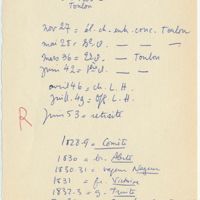 Toulon
nov 27 = él. ch. enh. conc. Toulon
mai 28 = 2e d° — — —
mars 36 = d° — Toulon
juin 42 = 1er d° — —
avril 46 = ch. L. H.
juil. 49 = Off. L. H.
R juin 53 = retraite
1828.9 = Comète
1830 = br. Alerte
1830.31 = vapeur Nageur
1831 = fr. Victoire
1832.3 = g. Truite